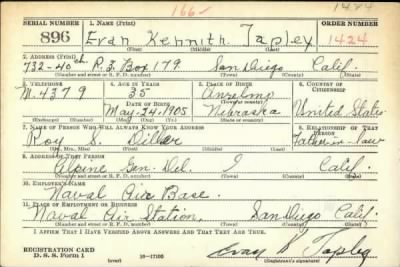 166
1424
SERIAL NUMBER 1. NAME (Print) ORDER NUMBER
896 Evan Kennith Tapley 1424
(First) (Middle) (Last)
2. ADDRESS (Print)
732-40th R.3 Box 179 San Diego Calif.
(Number and street or R. F. D. number) (Town) (County) (State)
3. TELEPHONE 4. AGE IN YEARS 5. PLACE OF BIRTH 6. COUNTRY OF CITIZENSHIP
M.4379 35 Anselmo
DATE OF BIRTH (Town or county)
May-24-1905 Nebraska United States
(Exchange) (No.) (Mo.) (Day) (Yr.) (State or country)
7. NAME OF PERSON WHO WILL ALWAYS KNOW YOUR ADDRESS 8. RELATIONSHIP OF THAT PERSON
Roy S. Diller Father-in-law
(Mr., Mrs., Miss) (First) (Middle) (Last)
9. ADDRESS OF THAT PERSON
Alpine Gen. Del. Calif.
(Number and street or R. F. D. number) (Town) (County) (State)
10. EMPLOYER'S NAME
Naval Air Base.
11. PLACE OF EMPLOYMENT OR BUSINESS
Naval Air Station, San Diego Calif.
(Number and street or R. F. D. number) (Town) (County) (State)
I AFFIRM THAT I HAVE VERIFIED ABOVE ANSWERS AND THAT THEY ARE TRUE.
REGISTRATION CARD
D. S. S. Form 1 (over) 16-17105 Evan K Tapley
(Registrant's signature)